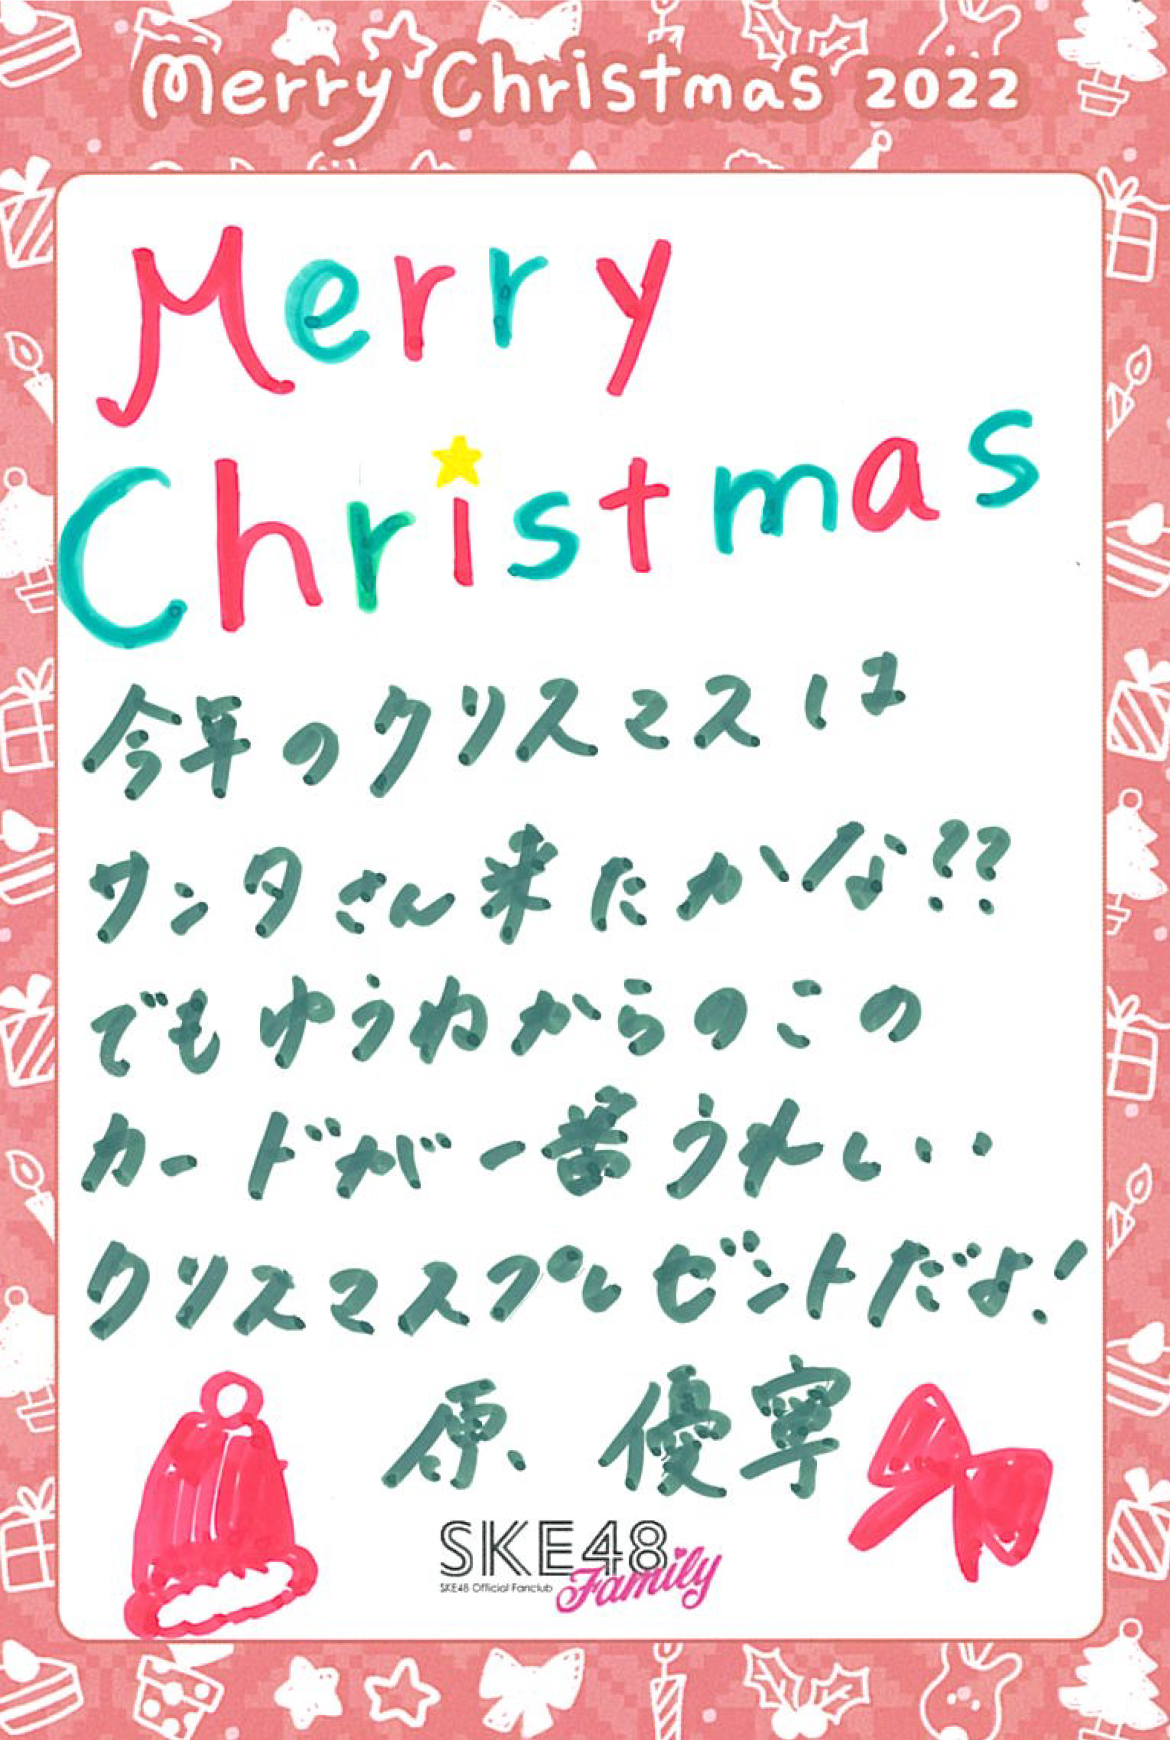 Merry Christmas 2022
Merry
Christmas
今年のクリスマスは
サンタさん来たかな??
でもゆうねからのこの
カードが一番うれしい
クリスマスプレゼントだよ!
原 優寧
SKE48
SKE48 Official Fanclub
Family